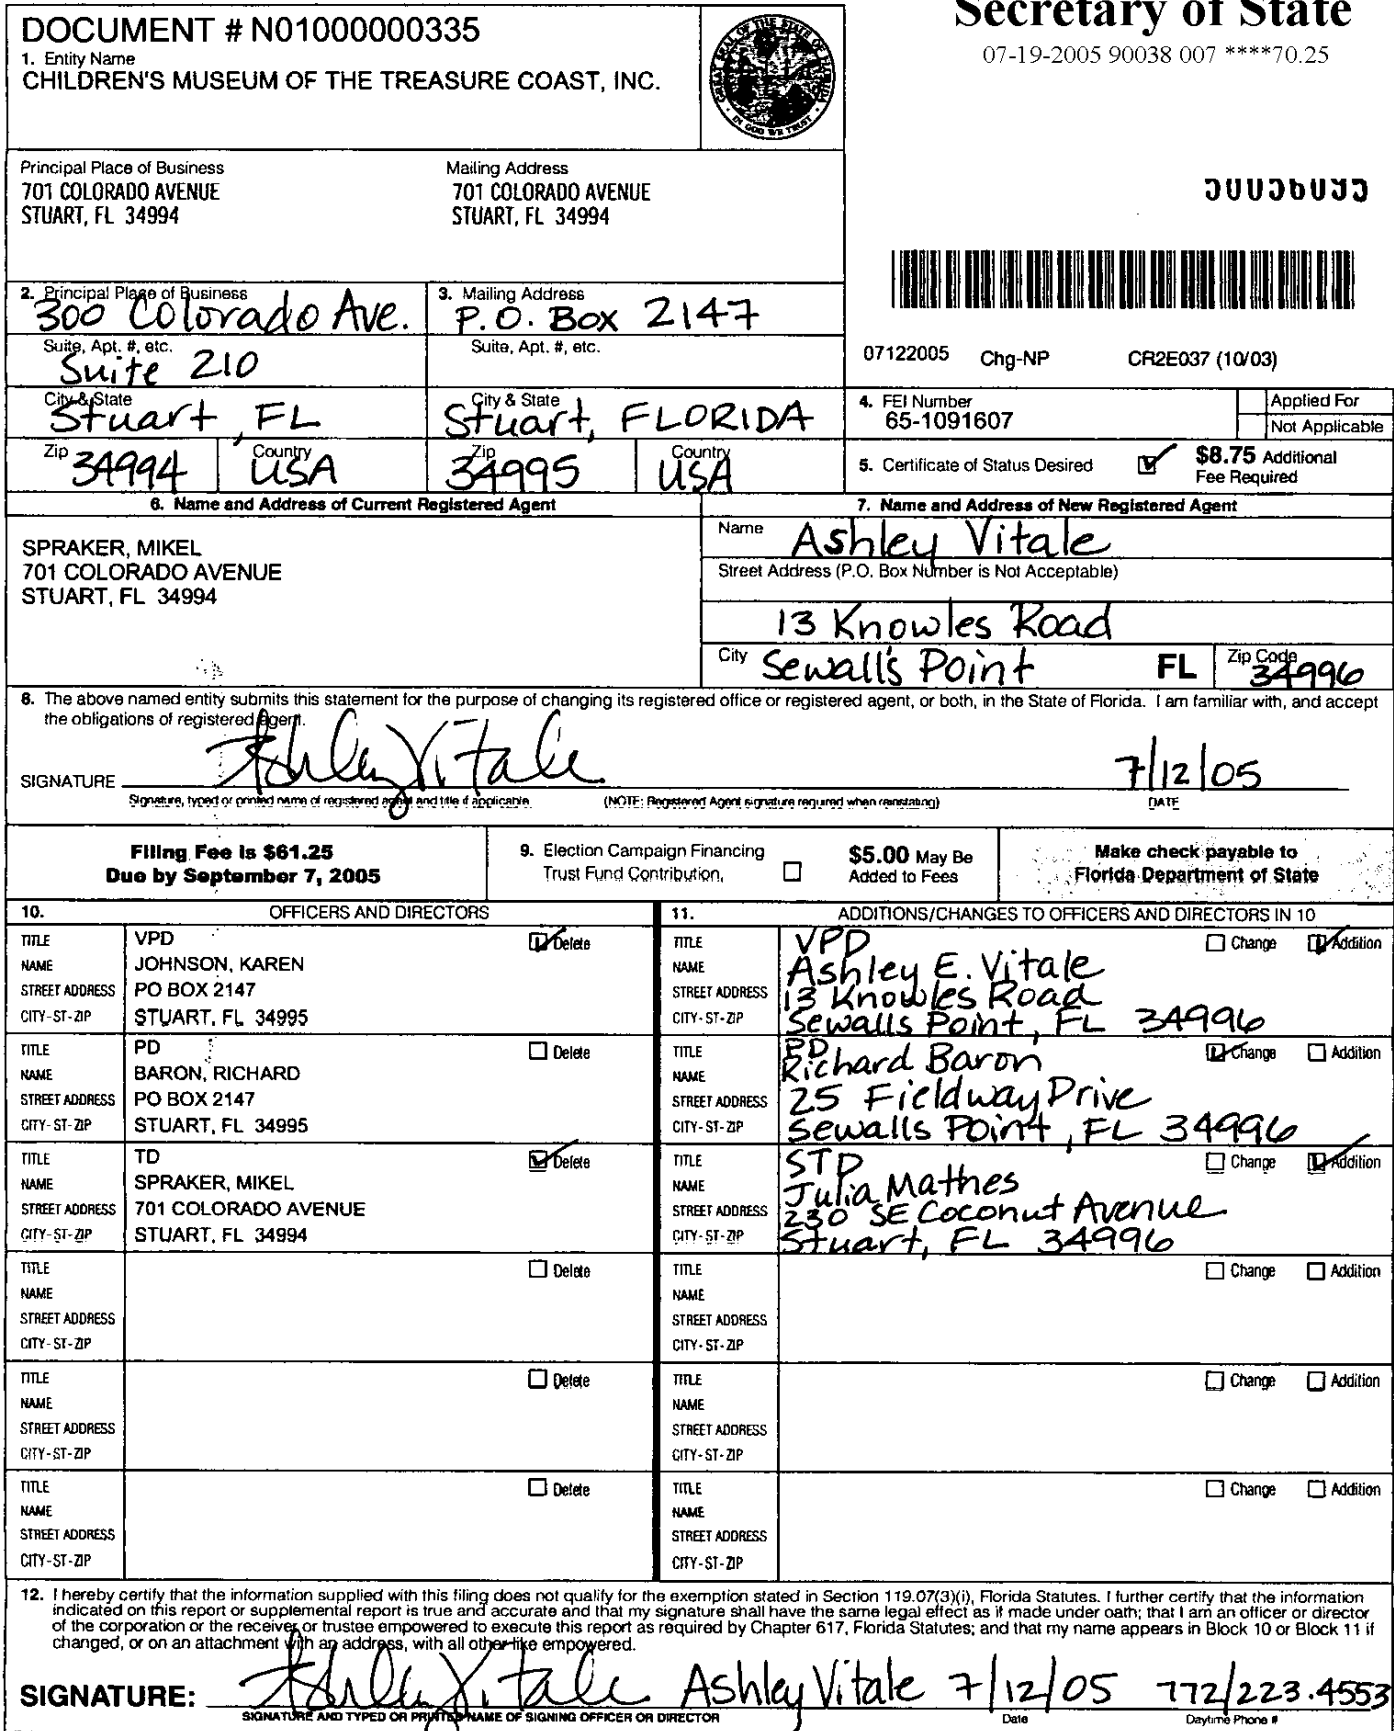 Secretary of State
07-19-2005 90038 007 ****70.25
DOCUMENT # N01000000335
1. Entity Name
CHILDREN'S MUSEUM OF THE TREASURE COAST, INC.
Principal Place of Business
701 COLORADO AVENUE
STUART, FL 34994
Mailing Address
701 COLORADO AVENUE
STUART, FL 34994
2. Principal Place of Business
300 Colorado Ave.
3. Mailing Address
P.O. Box 2147
Suite, Apt. #, etc.
Suite 210
Suite, Apt. #, etc.
07122005 Chg-NP CR2E037 (10/03)
City & State
Stuart, FL
City & State
Stuart, FLORIDA
Zip 34994
Country USA
Zip 34995
Country USA
4. FEI Number
65-1091607
Applied For
Not Applicable
5. Certificate of Status Desired
$8.75 Additional
Fee Required
6. Name and Address of Current Registered Agent
SPRAKER, MIKEL
701 COLORADO AVENUE
STUART, FL 34994
7. Name and Address of New Registered Agent
Name Ashley Vitale
Street Address (P.O. Box Number is Not Acceptable)
13 Knowles Road
City Sewall's Point FL Zip Code 34996
8. The above named entity submits this statement for the purpose of changing its registered office or registered agent, or both, in the State of Florida. I am familiar with, and accept
the obligations of registered agent.
SIGNATURE Ashley Vitale 7/12/05
Signature, typed or printed name of registered agent and title if applicable. (NOTE: Registered Agent signature required when reinstating) DATE
Filing Fee is $61.25
Due by September 7, 2005
9. Election Campaign Financing
Trust Fund Contribution.
$5.00 May Be
Added to Fees
Make check payable to
Florida Department of State
10. OFFICERS AND DIRECTORS
TITLE VPD Delete
NAME JOHNSON, KAREN
STREET ADDRESS PO BOX 2147
CITY-ST-ZIP STUART, FL 34995
TITLE PD Delete
NAME BARON, RICHARD
STREET ADDRESS PO BOX 2147
CITY-ST-ZIP STUART, FL 34995
TITLE TD Delete
NAME SPRAKER, MIKEL
STREET ADDRESS 701 COLORADO AVENUE
CITY-ST-ZIP STUART, FL 34994
TITLE Delete
NAME
STREET ADDRESS
CITY-ST-ZIP
TITLE Delete
NAME
STREET ADDRESS
CITY-ST-ZIP
TITLE Delete
NAME
STREET ADDRESS
CITY-ST-ZIP
11. ADDITIONS/CHANGES TO OFFICERS AND DIRECTORS IN 10
TITLE VPD Change Addition
NAME Ashley E. Vitale
STREET ADDRESS 13 Knowles Road
CITY-ST-ZIP Sewalls Point, FL 34996
TITLE PD Change Addition
NAME Richard Baron
STREET ADDRESS 25 Fieldway Drive
CITY-ST-ZIP Sewalls Point, FL 34996
TITLE STD Change Addition
NAME Julia Mathes
STREET ADDRESS 230 SE Coconut Avenue
CITY-ST-ZIP Stuart, FL 34996
TITLE Change Addition
NAME
STREET ADDRESS
CITY-ST-ZIP
TITLE Change Addition
NAME
STREET ADDRESS
CITY-ST-ZIP
TITLE Change Addition
NAME
STREET ADDRESS
CITY-ST-ZIP
12. I hereby certify that the information supplied with this filing does not qualify for the exemption stated in Section 119.07(3)(i), Florida Statutes. I further certify that the information
indicated on this report or supplemental report is true and accurate and that my signature shall have the same legal effect as if made under oath; that I am an officer or director
of the corporation or the receiver or trustee empowered to execute this report as required by Chapter 617, Florida Statutes; and that my name appears in Block 10 or Block 11 if
changed, or on an attachment with an address, with all other like empowered.
SIGNATURE: Ashley Vitale Ashley Vitale 7/12/05 772/223.4553
SIGNATURE AND TYPED OR PRINTED NAME OF SIGNING OFFICER OR DIRECTOR Date Daytime Phone #